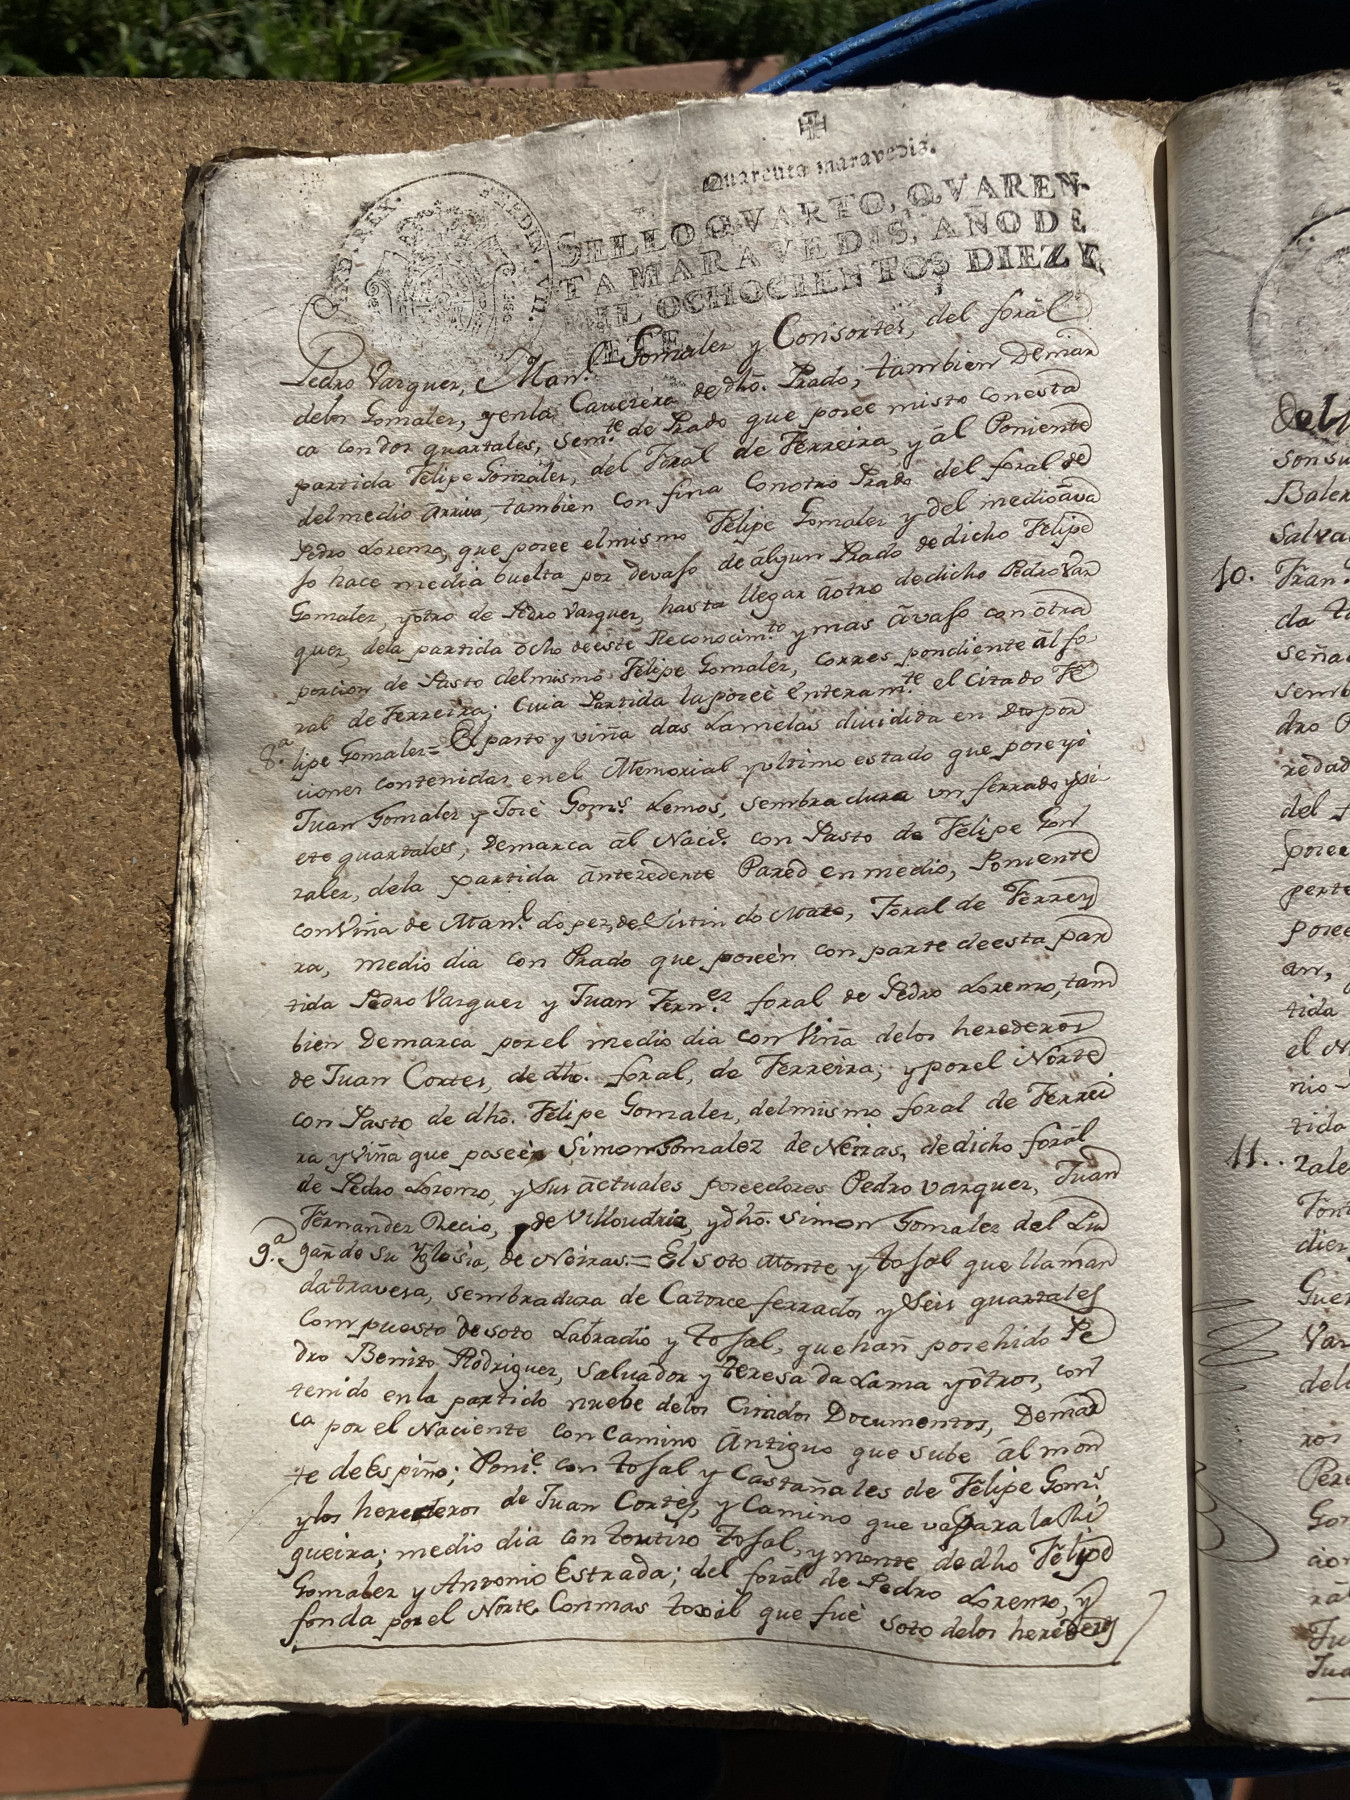 Quarenta maravedis.
SELLO QVARTO, QVAREN-
TA MARAVEDIS, AÑO DE
MIL OCHOCIENTOS DIEZ Y
SIETE.
Pedro Vazquez, Man.l Gonzalez y Consortes, del forál
delos Gonzalez, y enla Cavezera de dho. Prado, tambien Demar
ca con dos quartales, sem.te de Prado que posee misto conesta
partida Felipe Gonzalez, del Forál de Ferreira, y ál Poniente
del medio Arriva, tambien con fina Conotro Prado del foral de
Pedro Lorenzo, que posee elmismo Felipe Gonzalez y del medio áva
jo hace media buelta por devajo de álgun Prado dedicho Felipe
Gonzalez, y ótro de Pedro Vazquez, hasta llegar áotro dedicho Pedro Vaz
quez, dela partida ócho deeste Reconocim.to y mas ávajo con ótra
porcion de Pasto delmismo Felipe Gonzalez, corres pondiente ál fo-
ral de Ferreira; Cuia Partida laposeé Enteram.te el Citado Fe
8.a lipe Gonzalez = El pasto y viña das Lamelas dividida en Dos por
ciones contenidas enel Memorial y ultimo estado que poseyó
Juan Gonzalez y José Gonz.s Lemos, sembradura un ferrado y si
ete quartales; Demarca ál Naci.e con Pasto de Felipe Gon
zalez, dela partida ánteredente Pared en medio, Poniente
con Viña de Man.l Lopez, del Sirtin do Mato, Foral de Ferrey
ra, medio dia con Prado que poseén con parte deesta par
tida Pedro Vazquez y Juan Fern.ez foral de Pedro Lorenzo, tam
bien Demarca por el medio dia con Viña delos herederos
de Juan Cortes, de dho. foral, de Ferreira; y por el Norte
con Pasto de dho. Felipe Gonzalez, delmismo foral de Ferrei
ra y Viña que poseén Simon Gonzalez de Neiras, de dicho forál
de Pedro Lorenzo, y sus áctuales poseedores Pedro Vazquez, Juan
Fernandez Recio, de Villoudriz, y dho. Simon Gonzalez del Lu
9.a gar de su Yglesia, de Noiras = El soto Monte y tojal que llaman
da travesa, sembradura de Catorce ferrados y Seis quartales
Compuesto de soto Labradío y tojal, que han posehido Pe
dro Benito Rodriguez, Salvador y Teresa da Lama y ótros, con
tenido enla partido nuebe delos Citados Documentos, Demar
ca por el Naciente con Camino Antiguo que sube ál mon
te de Espiño; Poni.e con tojal y Castañales de Felipe Gonz.s
y los herederos de Juan Cortés, y Camino que va para la Ri
gueira; medio dia con toutizo tojal, y monte de dho Felipe
Gonzalez y Antonio Estrada; del forál de Pedro Lorenzo, y
fonda por el Norte Conmas toxál que fué soto delos herederos
10.
11.